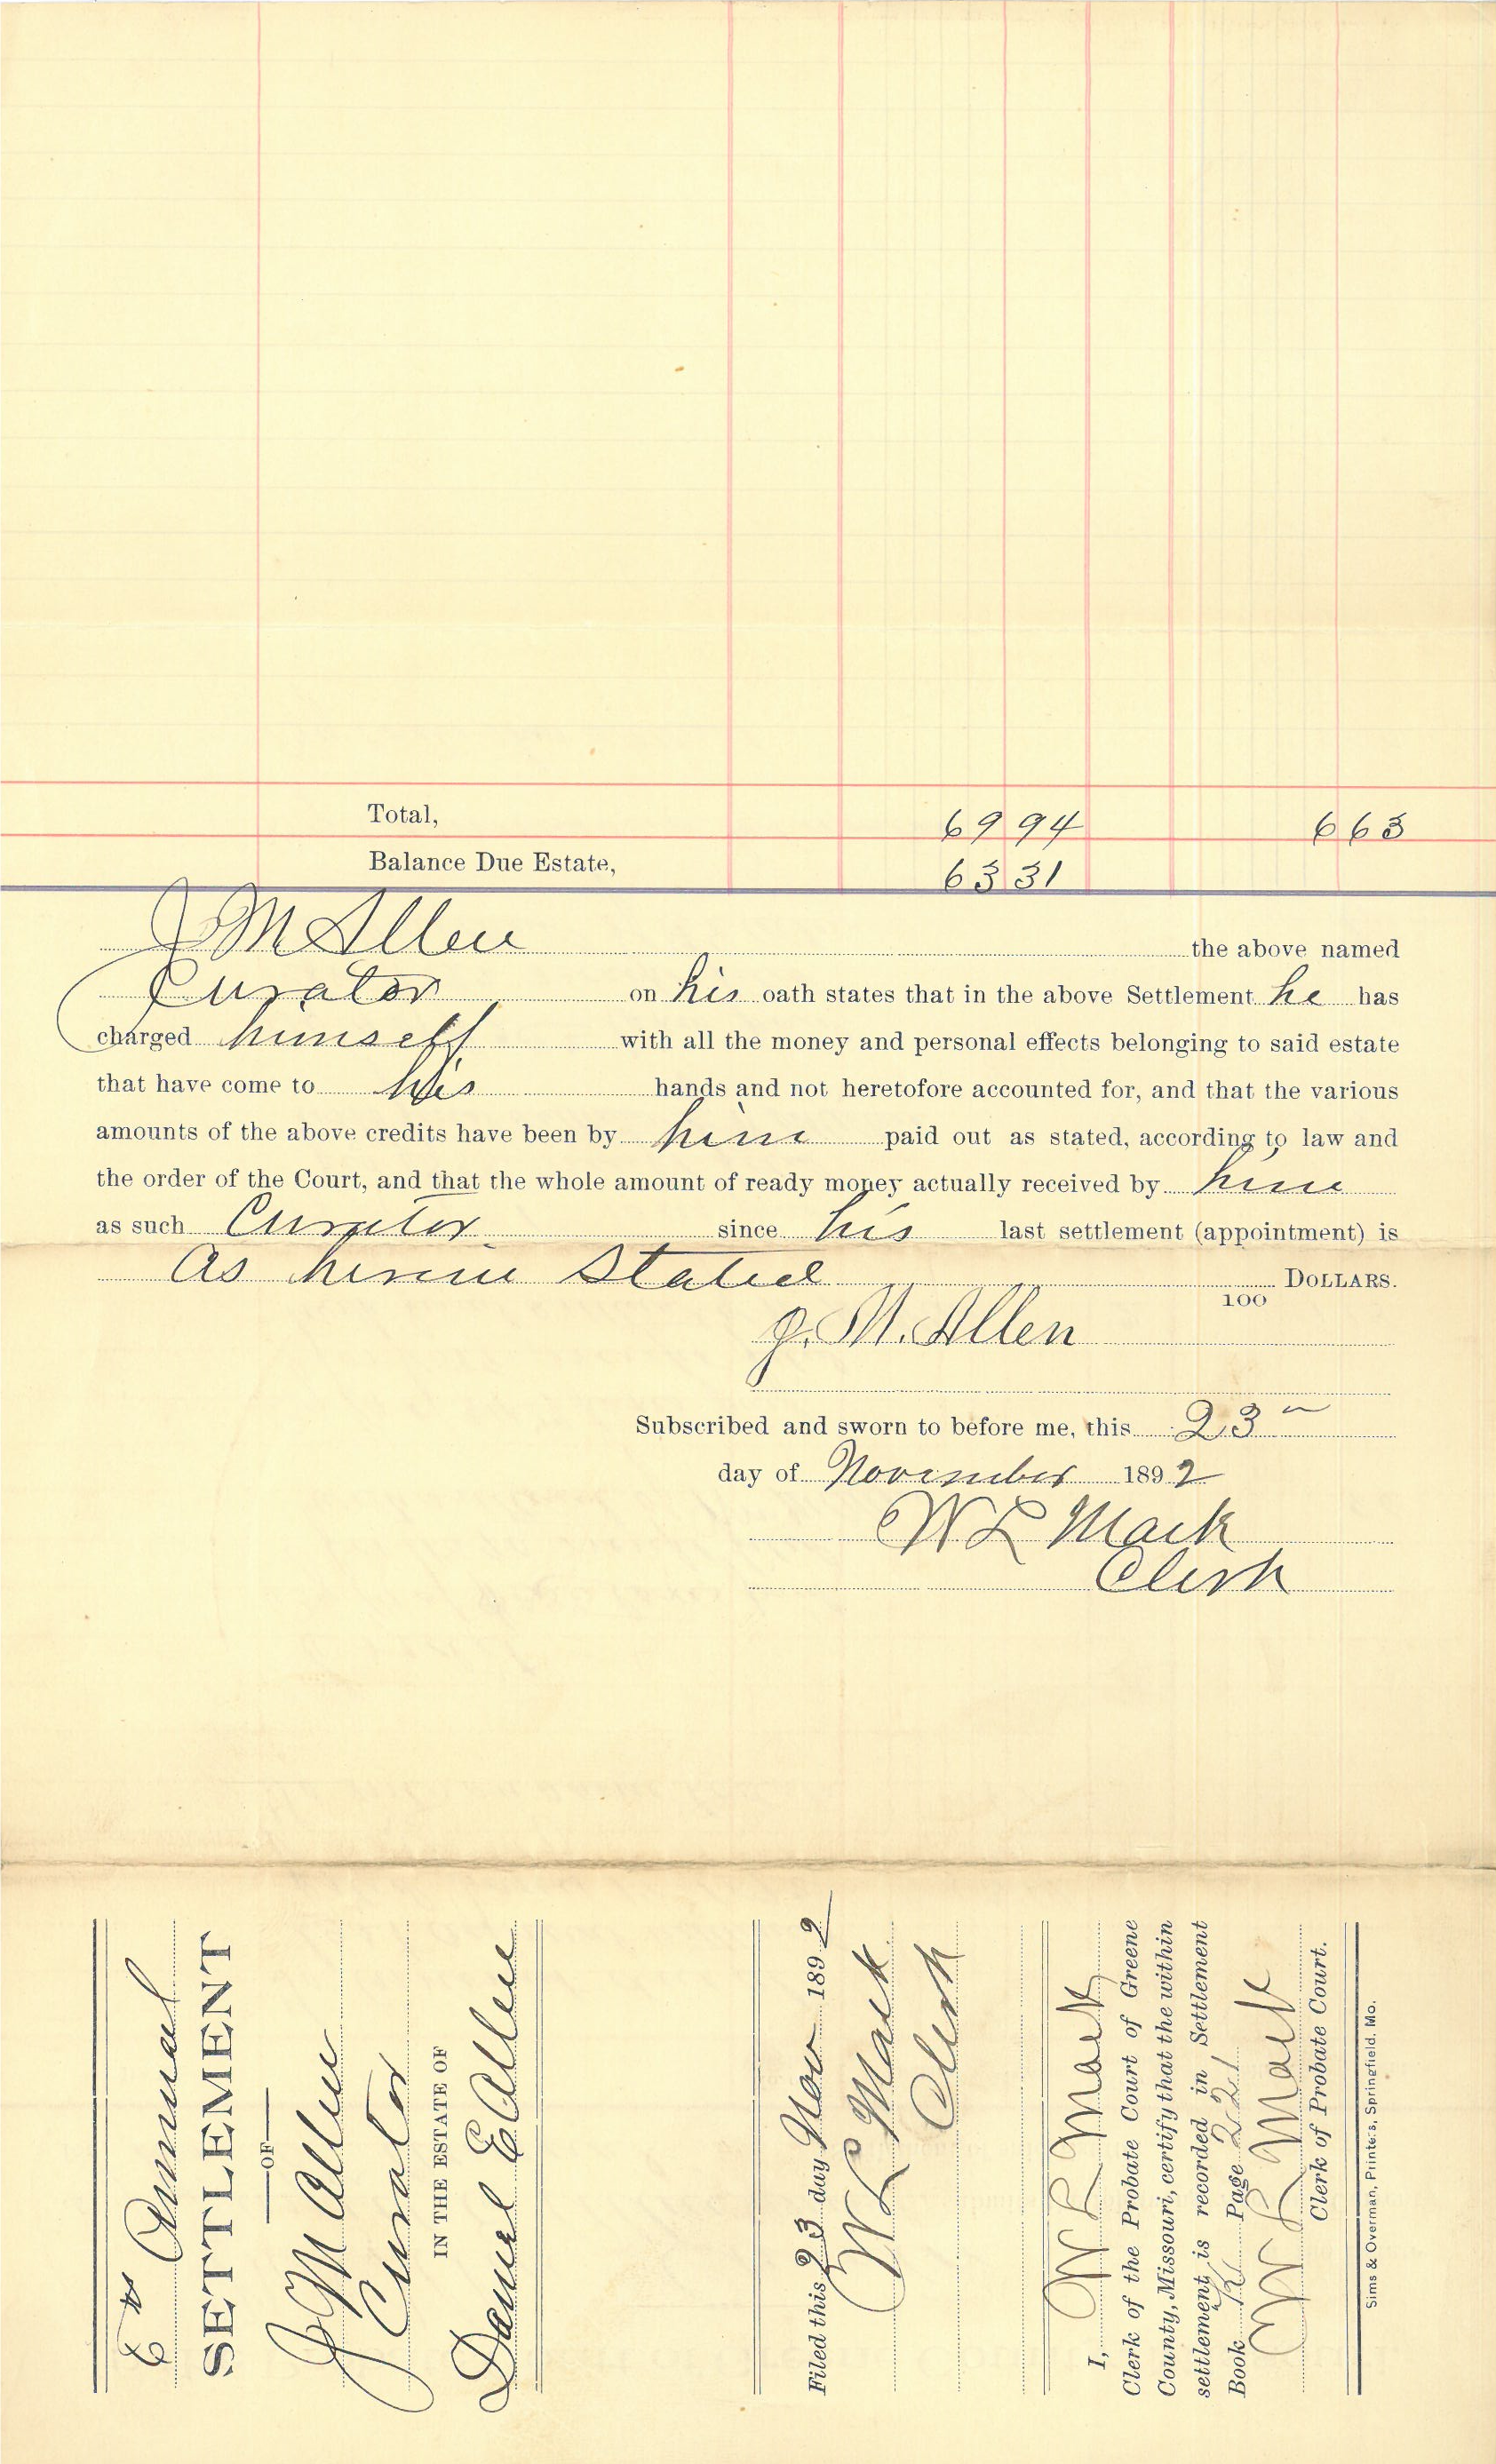 Total, 69 94 6 63
Balance Due Estate, 63 31
J M Allen the above named
Curator on his oath states that in the above Settlement he has
charged himself with all the money and personal effects belonging to said estate
that have come to his hands and not heretofore accounted for, and that the various
amounts of the above credits have been by him paid out as stated, according to law and
the order of the Court, and that the whole amount of ready money actually received by him
as such Curator since his last settlement (appointment) is
As herein Stated DOLLARS.
100
J. M. Allen
Subscribed and sworn to before me, this 23
day of November 1892
W L Mack
Clerk
6th Annual
SETTLEMENT
OF
J M Allen
Curator
IN THE ESTATE OF
Daniel E Allen
Filed this 23 day Nov 1892
W L Mack
Clerk
I, W L Mack
Clerk of the Probate Court of Greene
County, Missouri, certify that the within
settlement, is recorded in Settlement
Book K Page 221
W L Mack
Clerk of Probate Court.
Sims & Overman, Printers, Springfield, Mo.